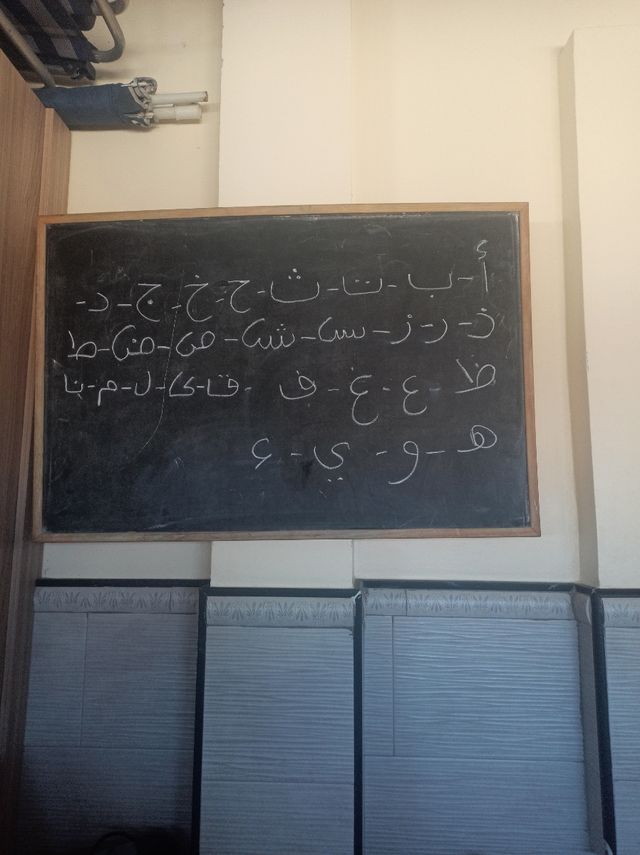 أ - ب - ت - ث - ح - خ - ج - د -
ذ - ر - ز - س - ش - ص - ض - ط
ظ - ع - غ - ف - ق - ك - ل - م - ن
ه - و - ي - ء